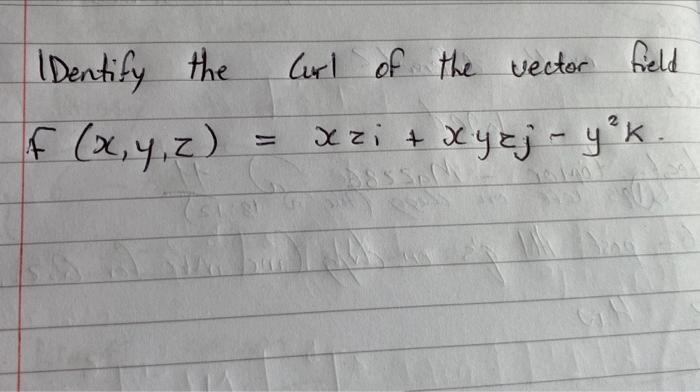 IDentify the Curl of the vector field
F (x,y,z) = xzi + xyzj - y²k.